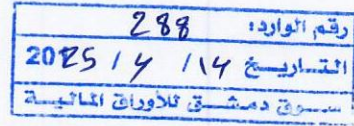 رقم الوارد: 288
التاريخ 14 / 4 / 2025
سوق دمشق للأوراق المالية